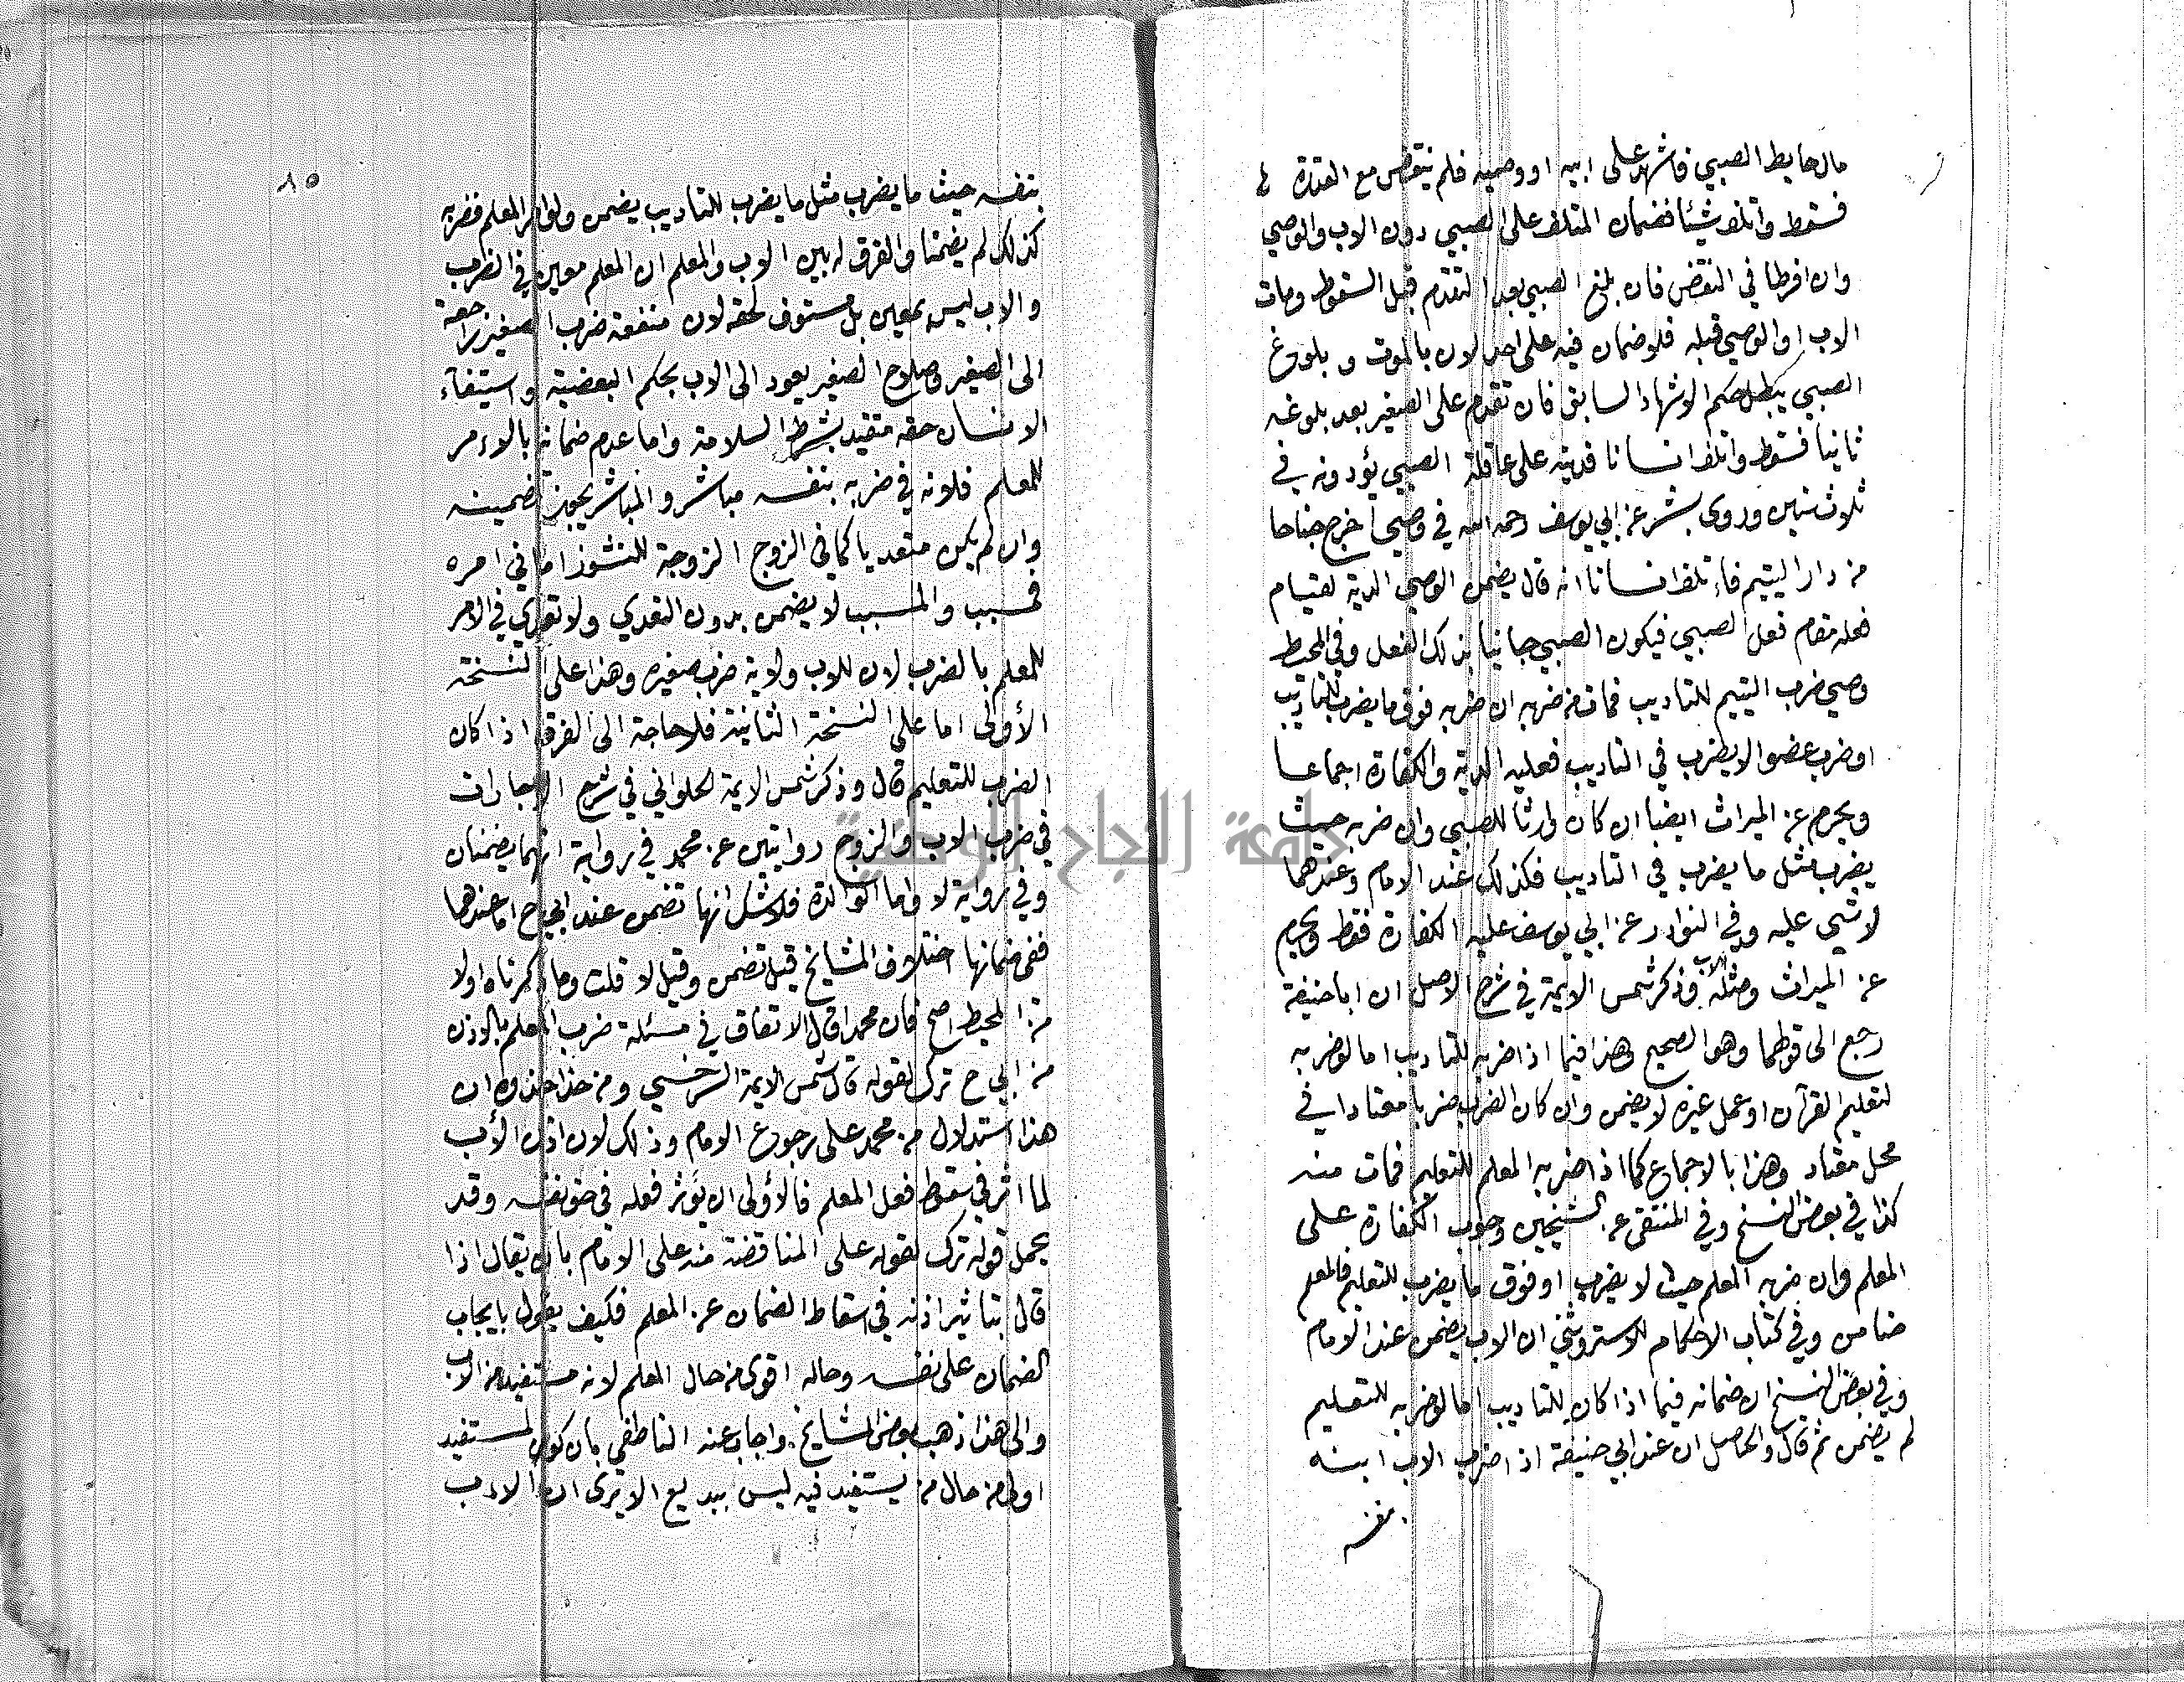 مال حايط الصبي فاشهد على ابيه او وصيه فلم ينقض مع القدرة
فسقط واتلف شيئا فضمان المتلف على الصبي دون الاب والوصي
وان افرطا في النقض فان بلغ الصبي بعد التقدم قبل السقوط ومات
الاب او الوصي قبله فلا ضمان فيه على احد لان بالموت و بلوغ
الصبي يبطل حكم الاشهاد السابق فان تقدم على الصغير بعد بلوغه
ثانيا فسقط واتلف انسانا فديته على عاقلة الصبي يؤدونه في
ثلاث سنين وروى بشر عن ابي يوسف رحمه الله في وصي اخرج جناحا
من دار اليتيم فاتلف انسانا انه قال يضمن الوصي الدية لقيام
فعله مقام فعل الصبي فيكون الصبي جانيا بذلك الفعل وفي المحيط
وصي ضرب اليتيم للتاديب فمات من ضربه ان ضربه فوق ما يضرب للتاديب
او ضرب عضوا لا يضرب في التاديب فعليه الدية والكفارة اجماعا
ويحرم عن الميراث ايضا ان كان وارثا للصبي وان ضربه حيث
يضرب مثل ما يضرب في التاديب فكذلك عند الامام وعندهما
لا شي عليه وفي النوادر عن ابي يوسف عليه الكفارة فقط ويحرم
عن الميراث ومثله الاب وذكر شمس الايمة في شرح الاصل ان ابا حنيفة
رجع الى قولهما وهو الصحيح وهذا فيما اذا ضربه للتاديب اما لو ضربه
لتعليم القرآن او عمل غيره لا يضمن وان كان الضرب ضربا معتادا في
محل معتاد وهذا بالاجماع كما اذا ضربه المعلم للتعليم فمات منه
كذا في بعض النسخ وفي المنتقى عن الشيخين وجوب الكفارة على
المعلم وان ضربه المعلم حيث لا يضرب او فوق ما يضرب للتعليم فالمعلم
ضامن وفي كتاب الاحكام للاستروشني ان الاب يضمن عند الامام
وفي بعض النسخ ان ضمانه فيما اذا كان للتاديب اما لو ضربه للتعليم
لم يضمن ثم قال والحاصل ان عند ابي حنيفة اذا ضرب الاب ابنه
بنفسه
٨٥
بنفسه حيث ما يضرب مثل ما يضرب للتاديب يضمن ولو امر المعلم فضربه
كذلك لم يضمنا والفرق له بين الاب والمعلم ان المعلم معين في الضرب
والاب ليس بمعين بل مستوف لحقه لان منفعة ضرب الصغير راجعة
الى الصغير وصلاح الصغير يعود الى الاب بحكم البعضية واستيفآء
الانسان حقه متقيد بشرط السلامة واما عدم ضمانه بالامر
للمعلم فلانه في ضربه بنفسه مباشر والمباشر يجوز تضمينه
وان لم يكن متعديا كما في الزوج الزوجة للنشوز اما في امره
فمسبب والمسبب لا يضمن بدون التعدي ولا تعدي في الامر
للمعلم بالضرب لان للاب ولاية ضرب صغيره وهذا على النسخة
الأولى اما على النسخة الثانية فلا حاجة الى الفرق اذا كان
الضرب للتعليم قال وذكر شمس الايمة الحلواني في شرح الاجارات
في ضرب الاب والزوج روايتين عن محمد في رواية انهما يضمنان
وفي رواية لا واما الوالدة فلا شك انها تضمن عند ابي ح اما عندهما
ففي ضمانها اختلاف المشايخ قيل تضمن وقيل لا قلت وما ذكرناه اولا
من المحيط اصح فان محمدا قال الاتفاق في مسئلة ضرب المعلم بالاذن
من ابي ح ترك لقوله قال شمس الايمة السرخسي ومن حذا حذوه ان
هذا استدلال من محمد على رجوع الامام وذلك لان اذن الأب
لما اثر في سقوط فعل المعلم فالأولى ان يؤثر فعله في حق نفسه وقد
يحمل قوله ترك لقوله على المناقضة منه على الامام بان يقال اذا
قال بتاثير اذنه في اسقاط الضمان عن المعلم فكيف يقول بايجاب
الضمان على نفسه وحاله اقوى من حال المعلم لانه مستفيد من الاب
والى هذا ذهب بعض المشايخ واجاب عنه الناطفي بان كون المستفيد
اولى من حال من يستفيد فيه ليس ببديع الا يرى ان الاب
جامعة النجاح الوطنية